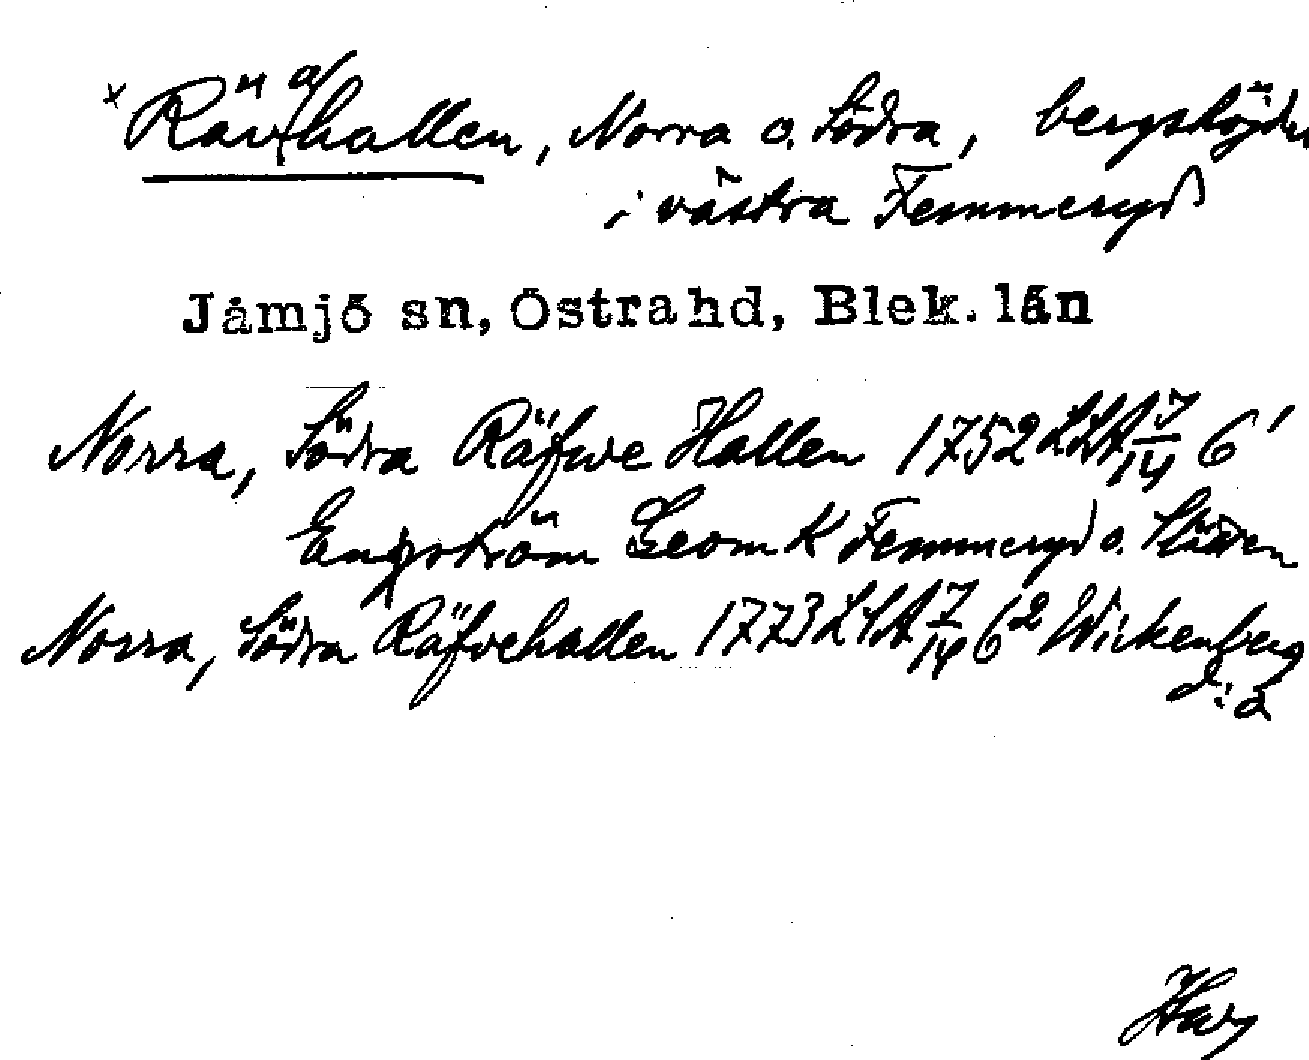 x Räv(a)hallen, Norra o. Södra, bergshöjder
i västra Femmeryd
Jämjö sn, Östra hd, Blek. län
Norra, Södra Räfwe Hallen 1752 LSA 7/14 6¹
Engström Geom K Femmeryd o.
Norra, Södra Räfvehallen 1773 LSA 7/14 6² Wickenberg
d:a